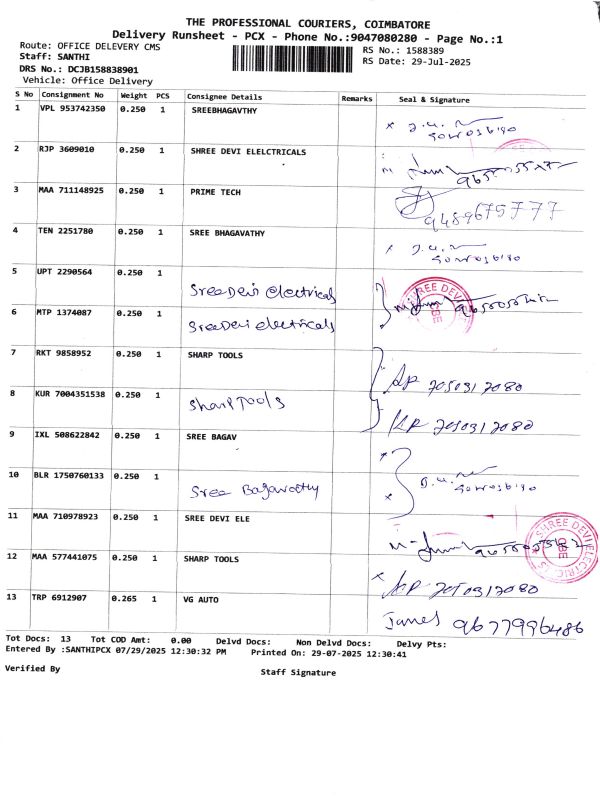 THE PROFESSIONAL COURIERS, COIMBATORE
Delivery Runsheet - PCX - Phone No.:9047080280 - Page No.:1
Route: OFFICE DELEVERY CMS
RS No.: 1588389
Staff: SANTHI
RS Date: 29-Jul-2025
DRS No.: DCJB158838901
Vehicle: Office Delivery
S No Consignment No Weight PCS Consignee Details Remarks Seal & Signature
1 VPL 953742350 0.250 1 SREEBHAGAVTHY
2 RJP 3609010 0.250 1 SHREE DEVI ELELCTRICALS
3 MAA 711148925 0.250 1 PRIME TECH
9489675777
4 TEN 2251780 0.250 1 SREE BHAGAVATHY
5 UPT 2290564 0.250 1 Sree Devi electricals
SHREE DEVI
CBE
6 MTP 1374087 0.250 1 Sree Devi electricals
7 RKT 9858952 0.250 1 SHARP TOOLS
7050317080
8 KUR 7004351538 0.250 1 Sharp Tools
7050317080
9 IXL 508622842 0.250 1 SREE BAGAV
10 BLR 1750760133 0.250 1 Sree Bagavathy
11 MAA 710978923 0.250 1 SREE DEVI ELE
SHREE DEVI ELECTRICALS
CBE
12 MAA 577441075 0.250 1 SHARP TOOLS
7050317080
13 TRP 6912907 0.265 1 VG AUTO
James 9677996486
Tot Docs: 13 Tot COD Amt: 0.00 Delvd Docs: Non Delvd Docs: Delvy Pts:
Entered By :SANTHIPCX 07/29/2025 12:30:32 PM Printed On: 29-07-2025 12:30:41
Verified By
Staff Signature